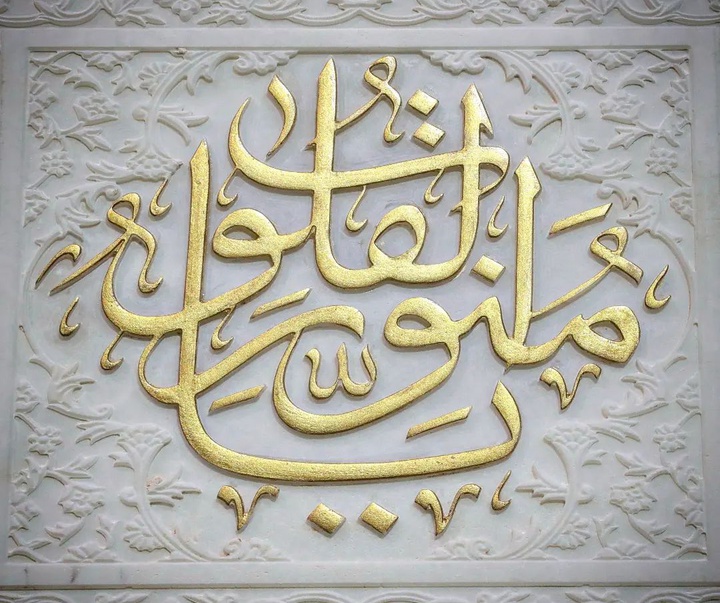 يا منور القلوب